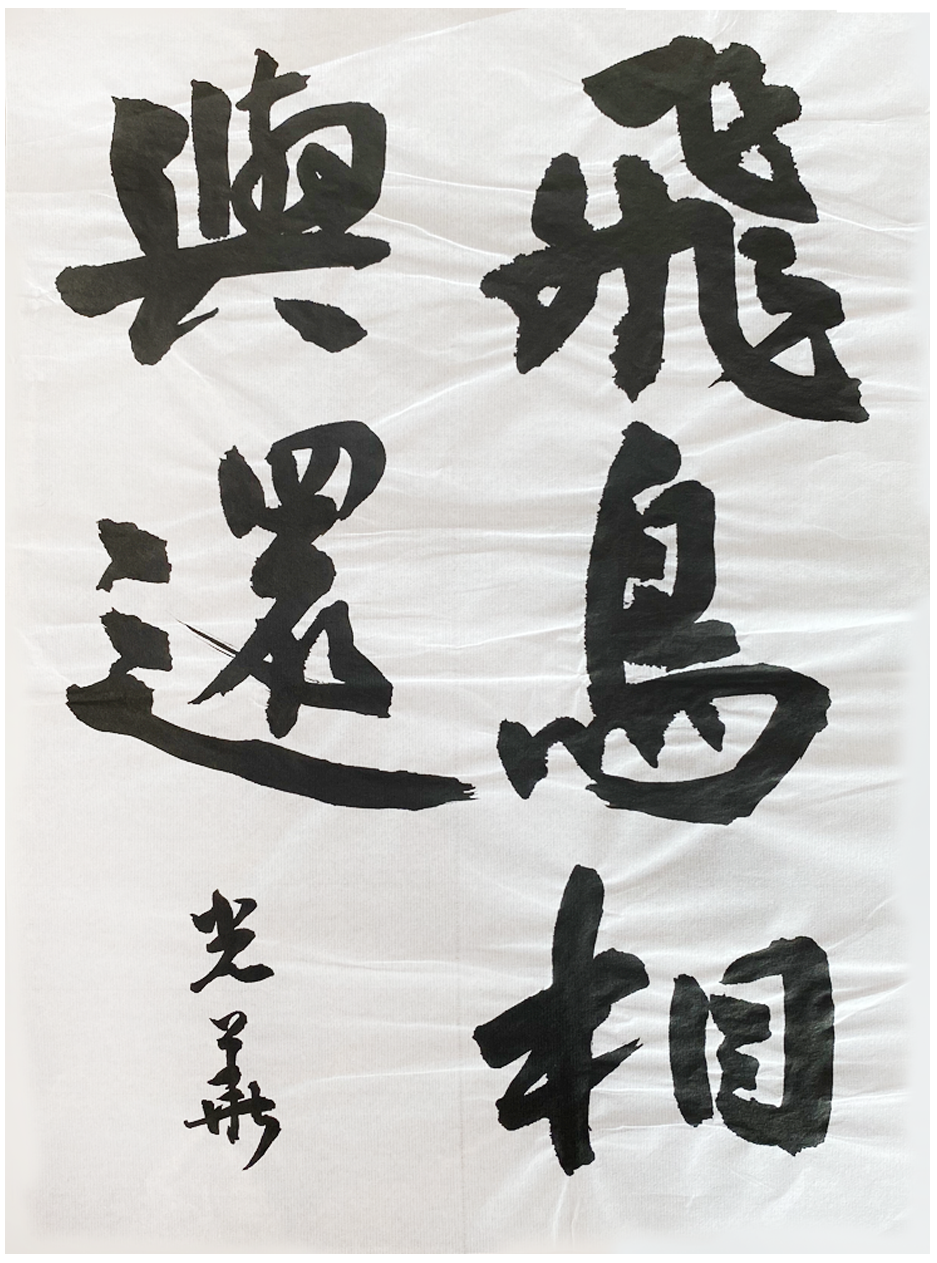 飛鳥相
與還
光華